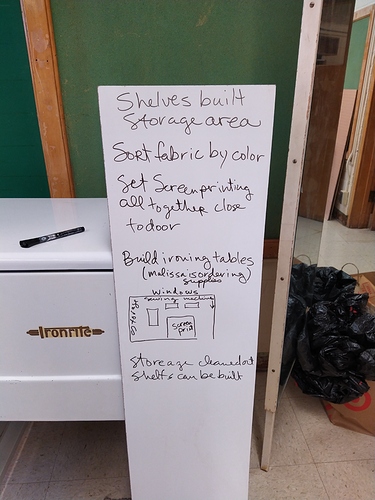 Shelves built
storage area
Sort fabric by color
Set Screenprinting
all together close
to door
Build ironing tables
(malissa is ordering)
supplies
Windows
sewing machine
screen
print
Storeage cleaned out
Shelfs can be built
Ironrite